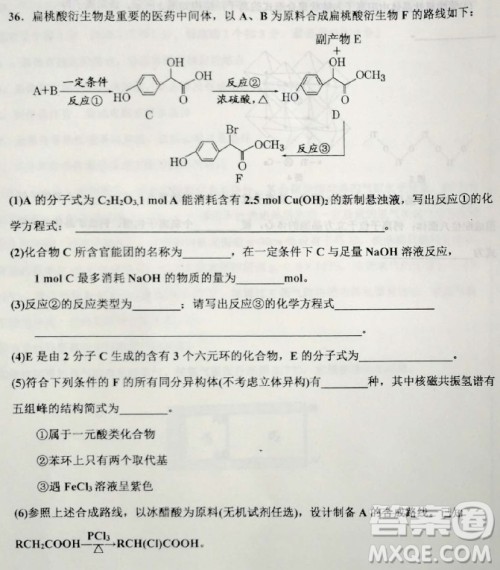 36．扁桃酸衍生物是重要的医药中间体，以 A、B 为原料合成扁桃酸衍生物 F 的路线如下：
副产物 E
+
A+B 一定条件 反应① HO OH OH O 反应② 浓硫酸，△ HO OH OCH₃ O
C D
Br
HO OCH₃ O 反应③
F
(1)A 的分子式为 C₂H₂O₃,1 mol A 能消耗含有 2.5 mol Cu(OH)₂ 的新制悬浊液，写出反应①的化
学方程式：________。
(2)化合物 C 所含官能团的名称为________，在一定条件下 C 与足量 NaOH 溶液反应，
1 mol C 最多消耗 NaOH 的物质的量为________mol。
(3)反应②的反应类型为________；请写出反应③的化学方程式________
________。
(4)E 是由 2 分子 C 生成的含有 3 个六元环的化合物，E 的分子式为________。
(5)符合下列条件的 F 的所有同分异构体(不考虑立体异构)有________种，其中核磁共振氢谱有
五组峰的结构简式为________。
①属于一元酸类化合物
②苯环上只有两个取代基
③遇 FeCl₃ 溶液呈紫色
(6)参照上述合成路线，以冰醋酸为原料(无机试剂任选)，设计制备 A 的合成路线，已知
RCH₂COOH PCl₃ △ RCH(Cl)COOH。
答案圈
MXQE.COM